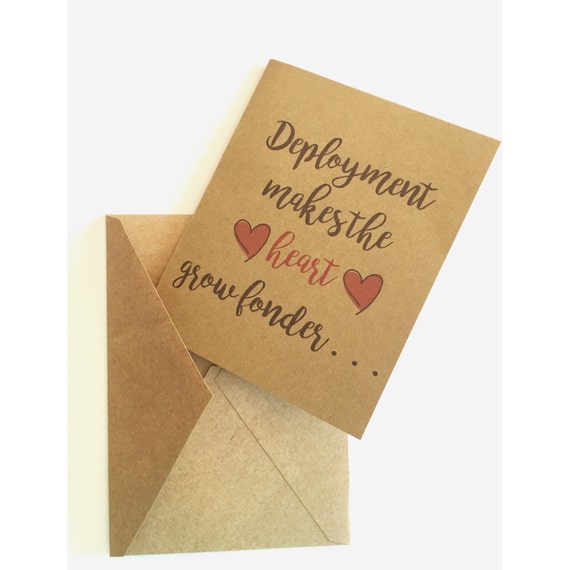 Deployment
makes the
heart
grow fonder....